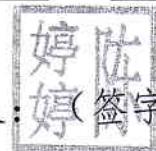 婷
婷
：（签字